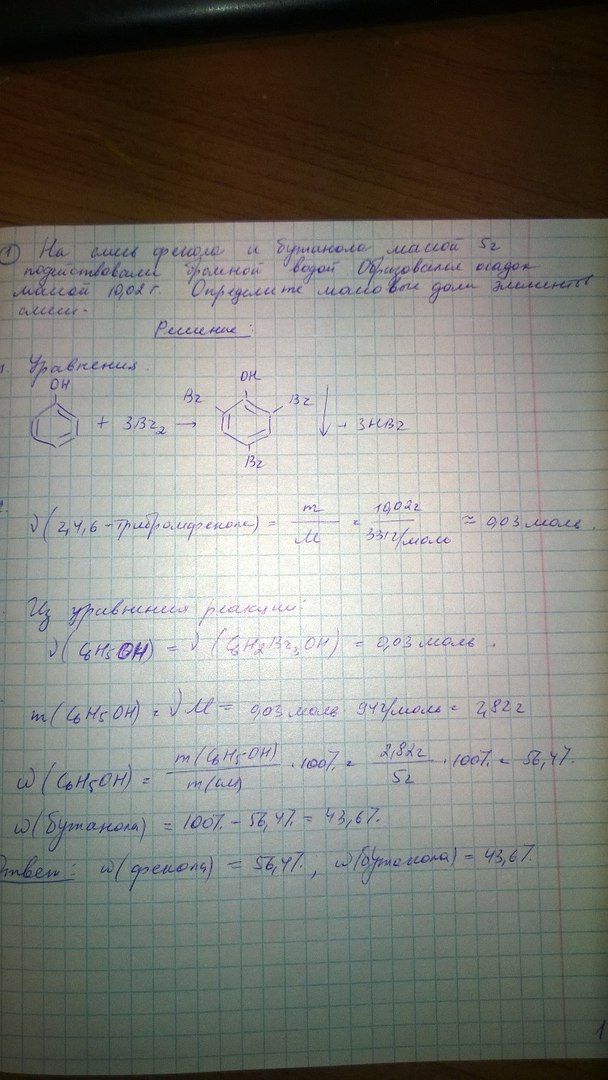 1 На смесь фенола и бутанола массой 5г
подействовали бромной водой Образовался осадок
массой 10,02 г. Определите массовые доли элементов
смеси.
Решение:
Уравнения.
OH
OH
Br Br
+ 3Br2 → ↓ + 3HBr
Br
ν(2,4,6-трибромфенола) = m/M = 10,02г/331г/моль ≈ 0,03 моль.
Из уравнения реакции:
ν(C6H5OH) = ν(C6H2Br3OH) = 0,03 моль.
m(C6H5OH) = νM = 0,03 моль 94г/моль = 2,82г
ω(C6H5OH) = m(C6H5-OH)/m(см) · 100% = 2,82г/5г · 100% = 56,4%.
ω(бутанола) = 100% - 56,4% = 43,6%.
Ответ: ω(фенола) = 56,4%, ω(бутанола) = 43,6%.
1